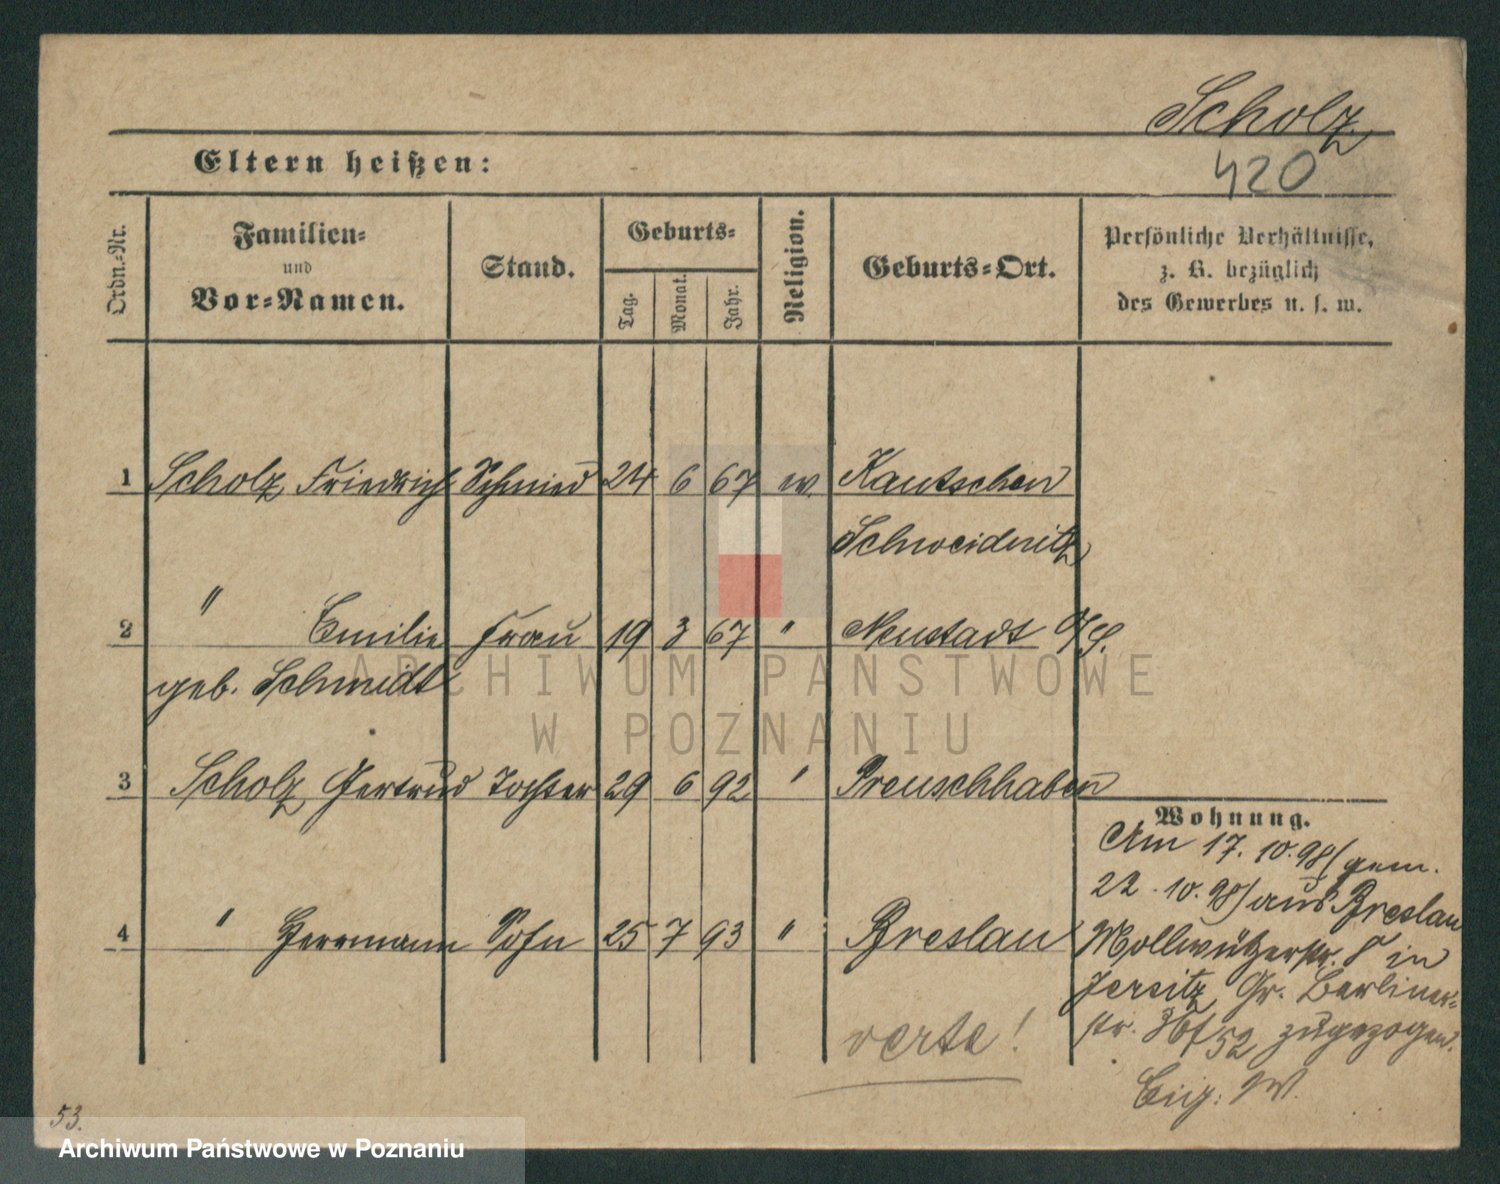 Scholz
420
Eltern heißen:
Ordn.-Nr.
Familien-
und
Vor-Namen.
Stand.
Geburts-
Tag.
Monat.
Jahr.
Religion.
Geburts-Ort.
Persönliche Verhältnisse,
z. B. bezüglich
des Gewerbes u. s. w.
1 Scholz Friedrich Schmied 24 6 67 ev. Kautschen
Schweidnitz
2 " Emilie Frau 19 3 67 " Neustadt O/S.
geb. Schmidt
3 Scholz Gertrud Tochter 29 6 92 " Preuschhaben
Wohnung.
Am 17. 10. 98 (gem.
22. 10. 98) aus Breslau
4 " Herrmann Sohn 25 7 93 " Breslau
Mollwitzerstr. in
Jersitz Gr. Berliner-
str. 52 zugezogen.
verte!
W.
53.
ARCHIWUM PAŃSTWOWE
W POZNANIU
Archiwum Państwowe w Poznaniu